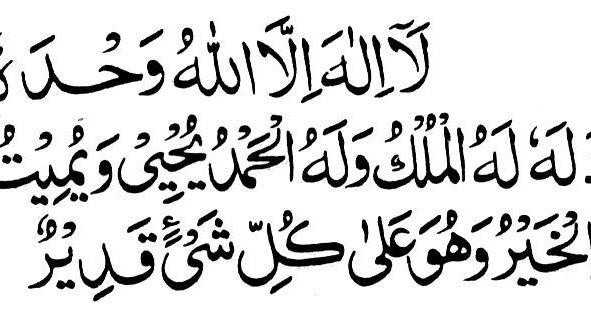 لَآ اِلٰهَ اِلَّا اللّٰهُ وَحْدَهٗ
لَهٗ لَهُ الْمُلْكُ وَلَهُ الْحَمْدُ يُحْيِيْ وَيُمِيْتُ
الْخَيْرُ وَهُوَ عَلٰى كُلِّ شَيْءٍ قَدِيْرٌ